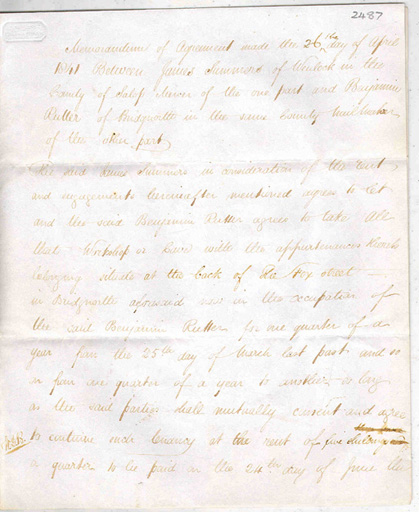 2487
Memorandum of Agreement made the 26th day of April
1841 Between James Simmons of in the
County of Salop of the one part and Benjamin
Rutter of Bridgnorth in the same County
of the other part
The said James Simmons in consideration of the rent
and engagements hereinafter mentioned agrees to let
and the said Benjamin Rutter agrees to take All
that Workshop or with the appurtenances thereto
belonging situate at the back of the Fox street
in Bridgnorth aforesaid now in the occupation of
the said Benjamin Rutter for one quarter of a
year from the 25th day of March last past and so
on from one quarter of a year to another so long
as the said parties shall mutually consent and agree
to continue such tenancy at the rent of five
a quarter to be paid on the 24th day of June the